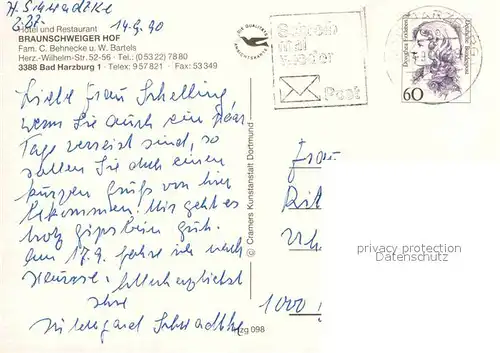 14.9.90
Hotel und Restaurant
BRAUNSCHWEIGER HOF
Fam. C. Behnecke u. W. Bartels
Herz.-Wilhelm-Str. 52-56 · Tel.: (0 53 22) 78 80
3388 Bad Harzburg 1 · Telex: 9 57 821 · Fax: 53 349
Schreib
mal
wieder
Post
Deutsche Bundespost
60
Liebe Frau Schelling,
wenn Sie auch ein paar
Tage verreist sind, so
sollen Sie doch einen
kurzen Gruß von hier
bekommen. Mir geht es
trotz Gipsbein gut.
am 17.9. fahre ich nach
Hause. Allerherzlichst
Ihre
Hildegard
© Cramers Kunstanstalt Dortmund
Frau
1000
zg 098
privacy protection
Datenschutz